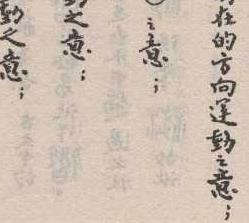 在的方向運動之意；
之意；
動之意；
動之意；